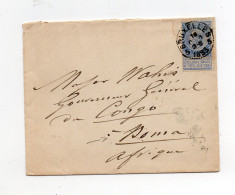 BRUXELLES
Major Wahis
Gouverneur Général
du Congo
à Boma
Afrique